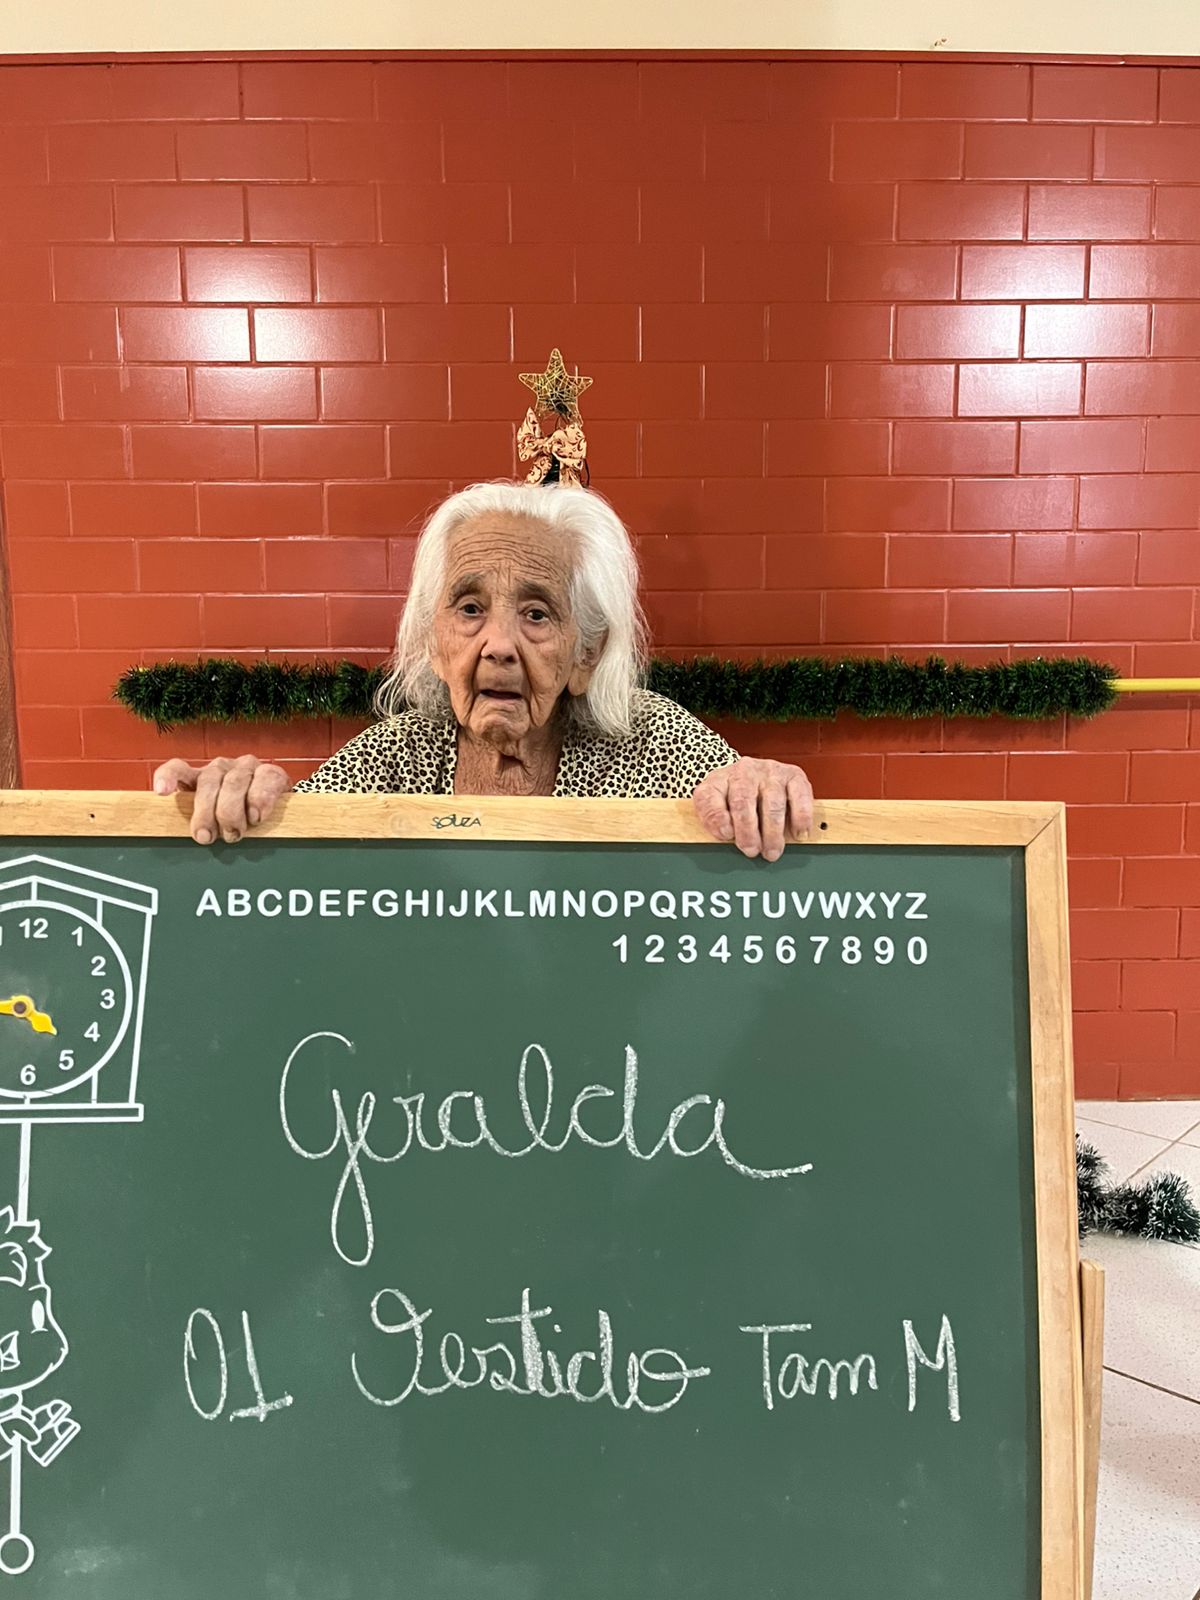 SOUZA
ABCDEFGHIJKLMNOPQRSTUVWXYZ
1234567890
12 1
2
3
4
5
6
Geralda
01 Vestido Tam M